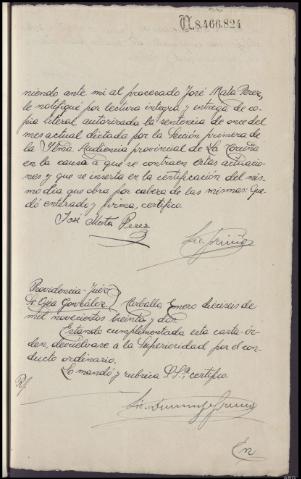 N.8.466.824
niendo ante mi al procesado José Mata Perez,
le notifiqué por lectura integra y entrega de co-
pia literal autorizada la sentencia de once del
mes actual dictada por la Sección primera de
la Yltma. Audiencia provincial de La Coruña
en la causa á que se contraen estas actuacio-
nes y que se inserta en la certificación del mis-
mo dia que obra por cabeza de las mismas: Que-
dó enterado y firma, certifico.
José Mata Perez
Providencia Juez
Sr Gea González
Carballo Enero dieciseis de
mil novecientos treinta y dos.
Estando cumplimentada esta carta ór-
den, devuelvase a la Superioridad por el con-
ducto ordinario.
Lo mandó y rubrica S.Sª. certifico.
En